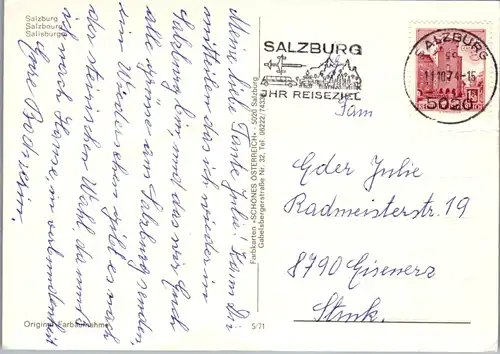 Salzburg
Salzbourg
Salisburgo
Meine liebe Tante Julie! Kann Dir
mitteilen das ich wieder in
Salzburg bin und das wir Euch
alle Grüsse aus Salzburg senden.
ein Wiedersehen gibt es nach
der steirischen Wahl da muß
ich nach Hause
Eure
Original Farbaufnahme
Farbkarten »SCHÖNES ÖSTERREICH« · 5020 Salzburg
Gabelsbergerstraße Nr. 32, Tel. 06222/74334
5/71
SALZBURG
IHR REISEZIEL
SALZBURG
11.10.74-15
5020
Fam
Eder Julie
Radmeisterstr. 19
8790 Eisenerz
Stmk.